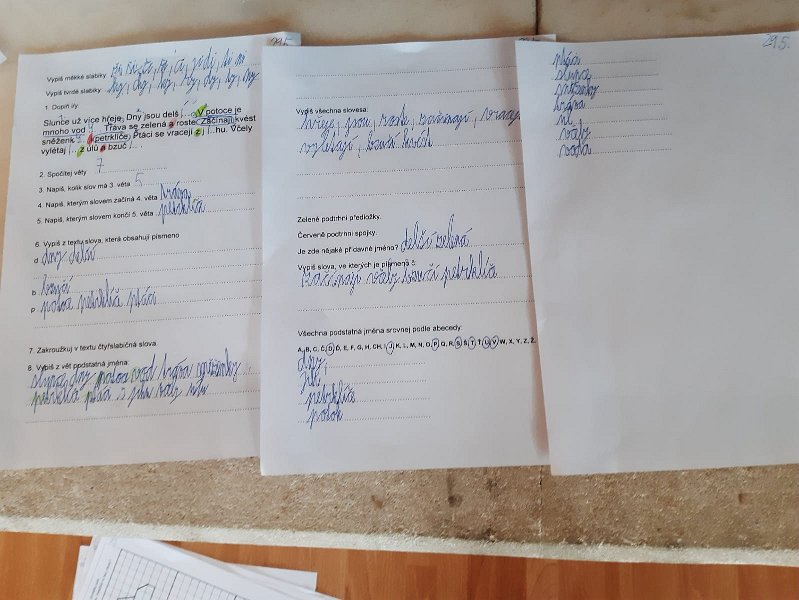 29.5.
Vypiš měkké slabiky
Vypiš tvrdé slabiky hy, chy, ky, ry, dy, ty, ny
1. Doplň i/y.
Slunce už více hřeje. Dny jsou delš í... V potoce je
mnoho vod y... Tráva se zelená a roste. Začínají kvést
sněženk... a petrklíče. Ptáci se vracejí z j i..hu. Včely
vylétají ... z úlů a bzuč í...
2. Spočítej věty 7
3. Napiš, kolik slov má 3. věta 5
4. Napiš, kterým slovem začíná 4. věta tráva
5. Napiš, kterým slovem končí 5. věta petrklíče
6. Vypiš z textu slova, která obsahují písmeno
d dny delší
b bzučí
p potoce petrklíče ptáci
7. Zakroužkuj v textu čtyřslabičná slova.
8. Vypiš z vět podstatná jména:
dny tráva sněženky
petrklíče včely
Vypiš všechna slovesa:
hřeje, jsou, roste, začínají, vracejí
vylétají, bzučí kvést
Zeleně podtrhni předložky.
Červeně podtrhni spojky.
Je zde nějaké přídavné jméno? delší zelená
Vypiš slova, ve kterých je písmeno č:
začínají včely bzučí petrklíče
Všechna podstatná jména srovnej podle abecedy:
A, B, C, Č, D, Ď, E, F, G, H, CH, I, J, K, L, M, N, O, P, Q, R, S, Š, T, Ť, U, V, W, X, Y, Z, Ž.
dny
jih
petrklíče
potok
29.5.
ptáci
slunce
sněženky
tráva
úl
včely
voda